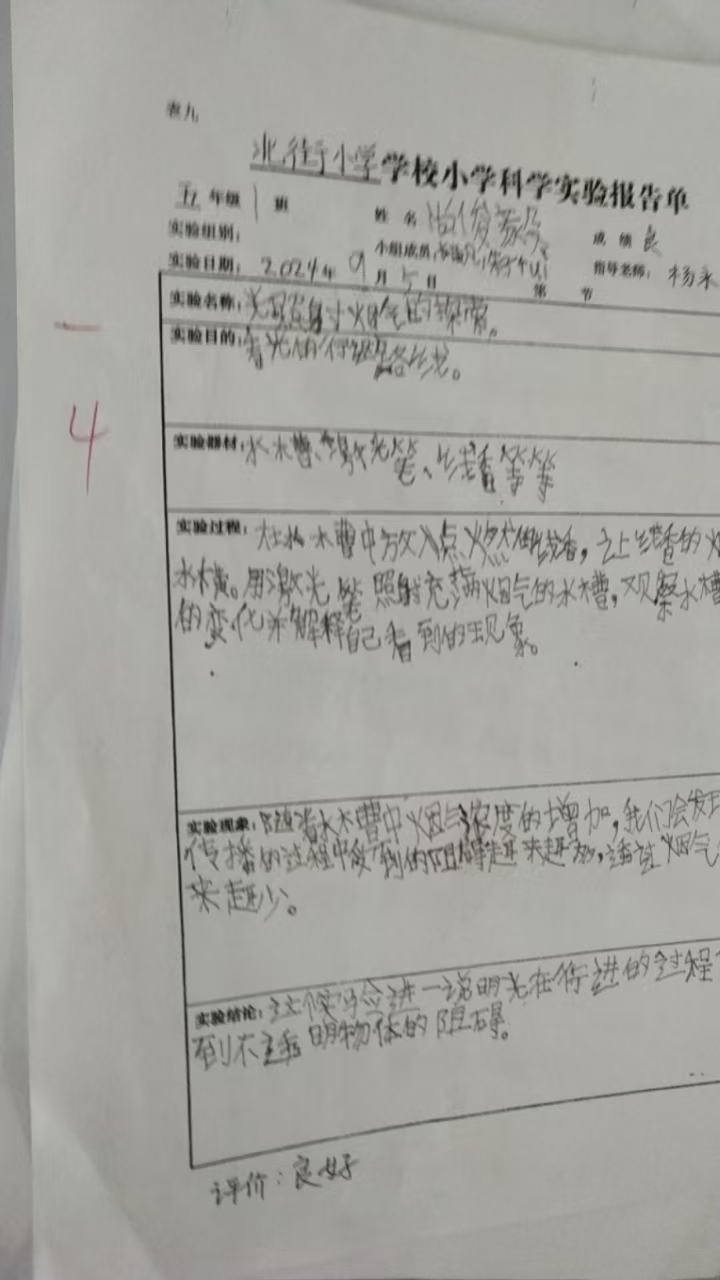 表九
北街小学学校小学科学实验报告单
五年级 1 班 姓名 成绩 良
实验组别: 小组成员:
实验日期: 2024年 9月 5日 第 节 指导老师: 杨永
实验名称: 光照射烟气的探索。
实验目的: 看光的行进路线。
一
4
实验器材: 水槽、激光笔、线香等等
实验过程: 在水槽中放入点燃的线香,让线香的烟
水槽。用激光笔照射充满烟气的水槽,观察水槽
的变化并解释自己看到的现象。
实验现象: 随着水槽中烟气浓度的增加,我们会发现
传播的过程中受到的阻碍越来越多,透过烟气
来越少。
实验结论: 这个实验进一说明光在行进的过程
到不透明物体的阻碍。
评价: 良好